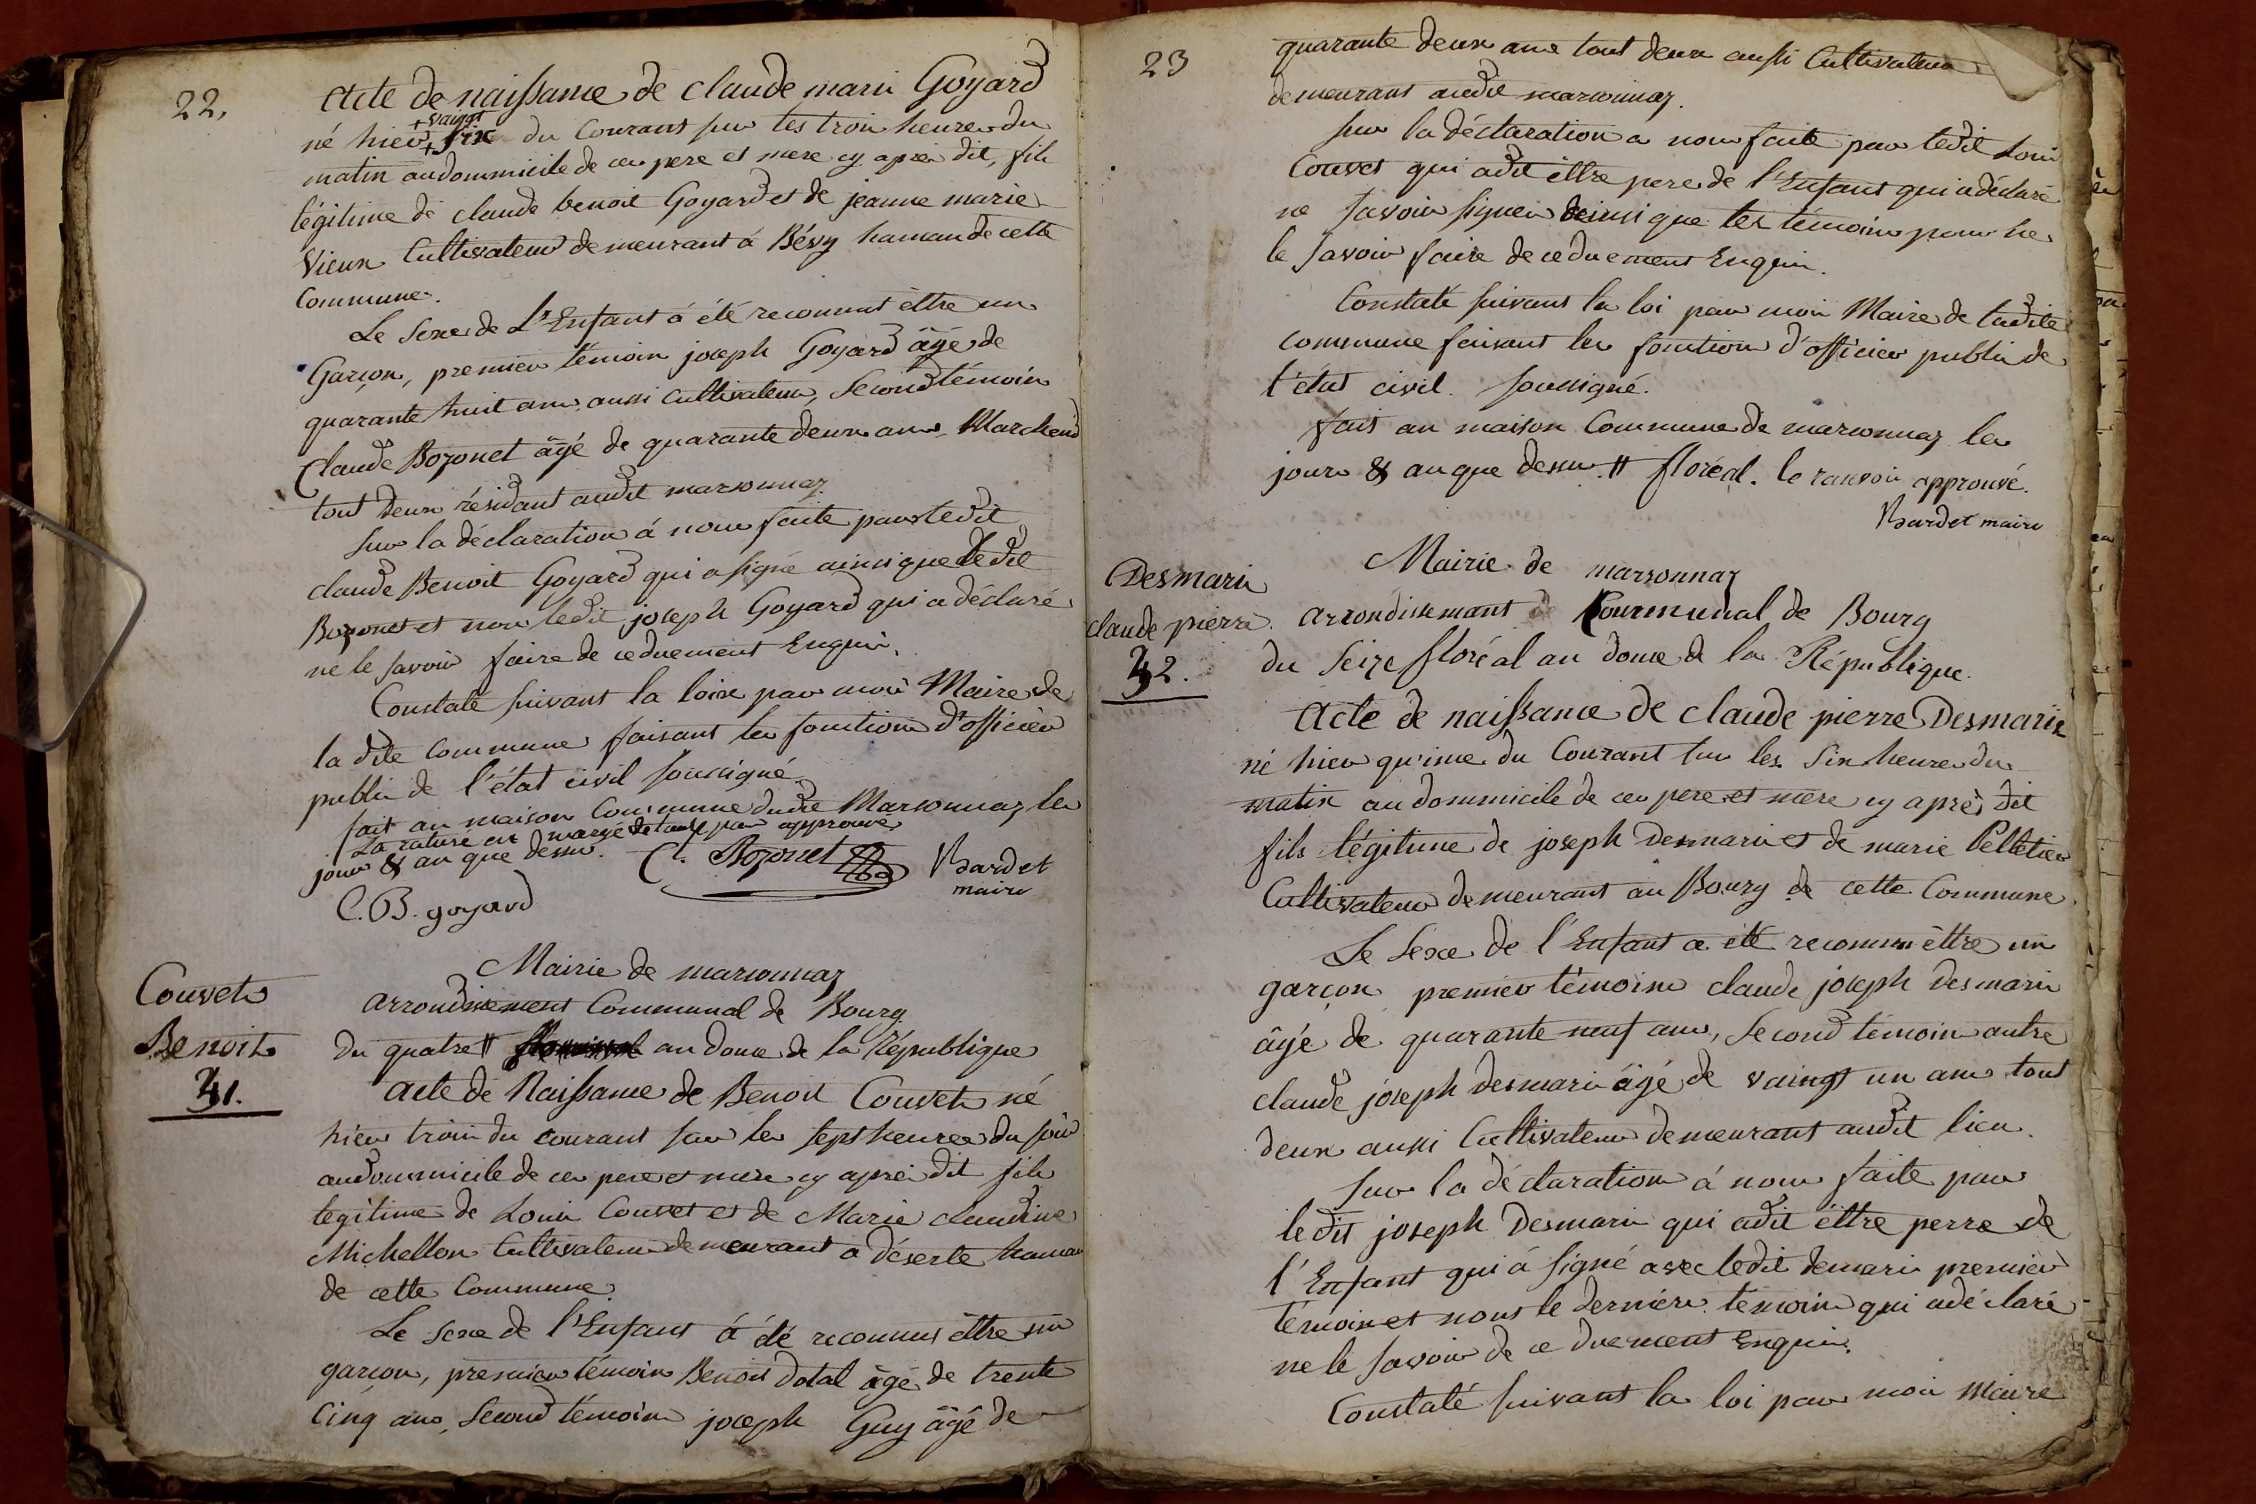 22,
Acte de naissance de claude marie Goyard
+ vaingt
né hier + six du Courant sur les trois heures du
matin au dommicile de ces pere et mere cy après dit, fils
légitime de claude benoit Goyard et de jeanne marie
Vieux Cultivateur demeurant á Bévy hamau de cette
Commune.
Le Sexe de L'Enfant á été reconnut ettre un
Garçon, premier témoin joseph Goyard âgé de
quarante huit ans, aussi Cultivateur, Second témoin
Claude Bozonet âgé de quarante deux ans Marchend
tout deux résidant audit marsonnaz.
Sur la déclaration á nous faite par ledit
claude Benoit Goyard qui a signé ainsi que le dit
Bozonet et non ledit joseph Goyard qui a déclaré
ne le savoir faire de ce duement Enquis.
Constaté suivant la loix par moi Maire de
la dite commune faisant les fonctions d'officier
public de l'état civil soussigné.
fait au maison Commune dudit Marsonnaz les
La rature en marge de taux pas approuvé
jour & an que dessus. C. Bozonet Bardet
maire
C. B. goyard
Couvet
Benoit
41.
Mairie de marsonnaz
arrondissement Communal de Bourg
du quatre # an douze de la République
acte de Naissance de Benoit Couvet né
hier trois du courant sur les sept heures du soir
au dommicile de ces pere et mere cy après dit fils
legitime de Louis Couvet et de Marie claudine
Michellon Cultivateur demeurant a déserte hamau
de cette Commune.
Le sexe de l'Enfant á été reconnus ettre un
garcon, premier témoin Benoit Dotal âgé de trente
Cinq ans, Second témoin joseph Guy âgé de
23
quarante deux ans tout deux aussi Cultivateur
demeurant audit marsonnaz.
Sur la déclaration a nous faite par ledit Louis
Couvet qui a dit ettre pere de l'Enfant qui a déclaré
ne savoir signer ainsi que les témoins pour ne
le savoir faire de ce duement Enquis.
Constaté suivant la loi par moi Maire de ladite
commune faisant les fonction d'officier public de
l'état civil soussigné.
fait au maison Commune de marsonnaz les
jour & an que dessus. # floréal. le ranvoi approuvé.
Bardet maire
Desmaris
claude pierre
42.
Mairie de marsonnaz
arrondissemant Communal de Bourg
du Seize floréal an douze de la République.
Acte de naissance de claude pierre Desmaris
né hier quinze du Courant sur les Six heures du
matin au dommicile de ces pere et mère cy après dit
fils légitime de joseph Desmaris et de marie Pelletier
Cultivateur demeurant au Bourg de cette Commune
Le Sexe de l'Enfant a été reconnu ettre un
garçon premier témoins claude joseph Desmaris
âgé de quarante neuf ans, Second témoin autre
claude joseph desmaris âgé de vaingt un ans tout
deux aussi Cultivateur demeurant audit lieu.
Sur la déclaration á nous faite par
le dit joseph Desmaris qui a dit éttre perre de
l'Enfant qui á signé avec ledit demaris premier
témoin et nont le derniere témoin qui a déclaré
ne le savoir de ce duement Enquis.
Constaté suivant la loi par moi Maire